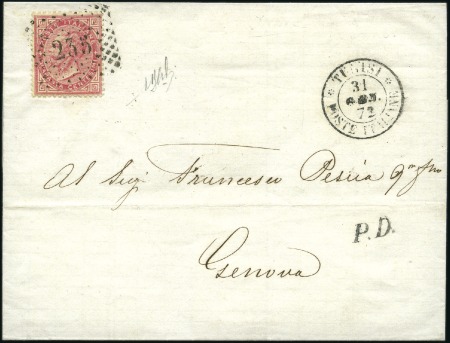 235
TUNISI
31
GEN.
72
POSTE ITALIANE
Al Sigr Francesco
P.D.
Genova